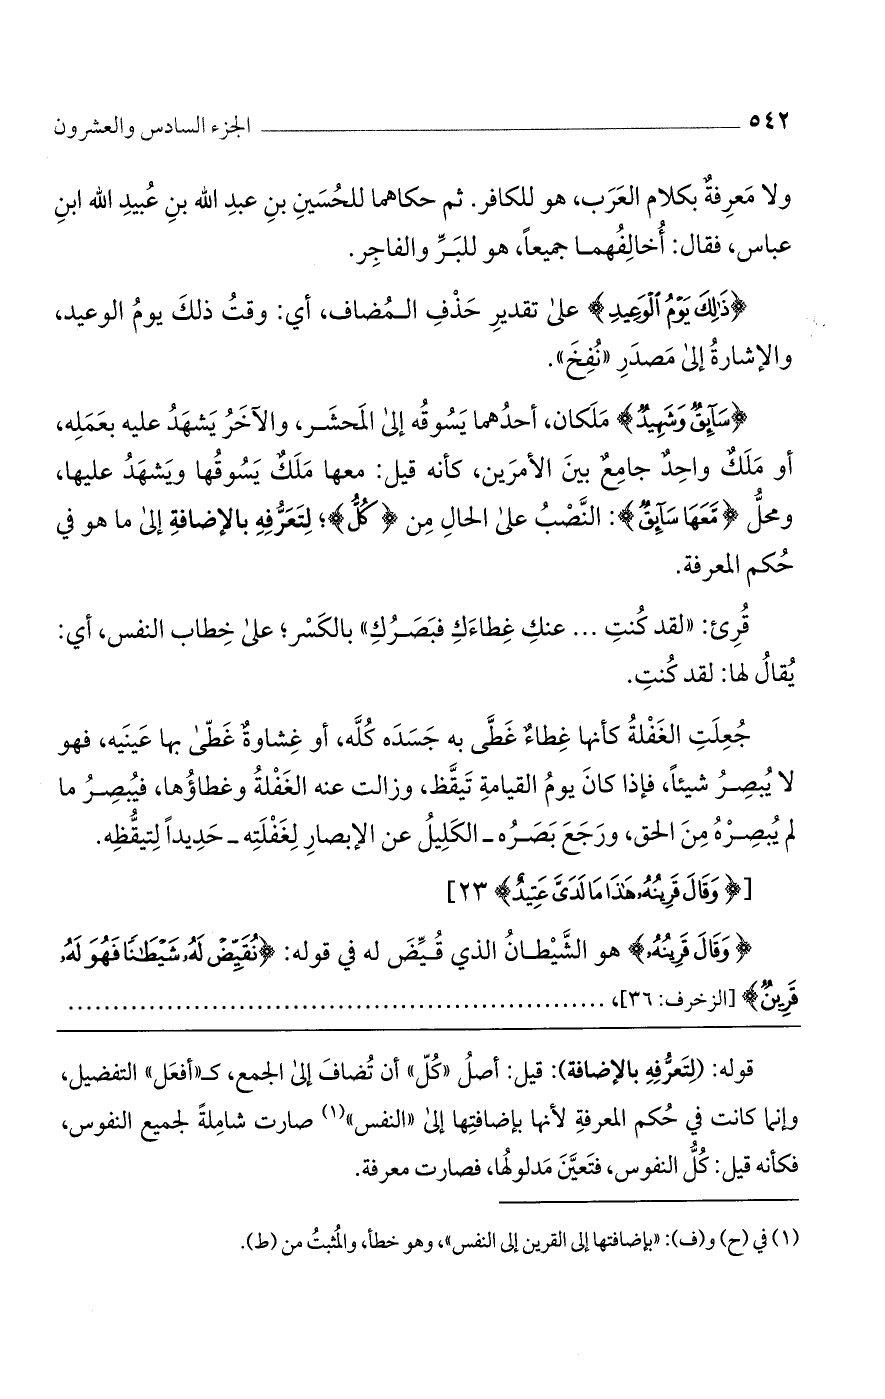 ٥٤٢ ــــــــــــــــــــــــــــ الجزء السادس والعشرون
ولا مَعرِفةٌ بكلام العَرَب، هو للكافر. ثم حكاهما للحُسَينِ بنِ عبدِ الله بنِ عُبيدِ الله ابنِ
عباس، فقال: أُخالِفُهمـا جميعاً، هو للبَـرِّ والفاجِر.
﴿ذَٰلِكَ يَوْمُ ٱلْوَعِيدِ﴾ علىٰ تقديرِ حَذْفِ الـمُضاف، أي: وقتُ ذلكَ يومُ الوعيد،
والإشارةُ إلىٰ مَصدَرِ «نُفِخَ».
﴿سَآئِقٌ وَشَهِيدٌ﴾ مَلَكان، أحدُهما يَسُوقُه إلىٰ المَحشَـر، والآخَرُ يَشهَدُ عليه بعَمَلِه،
أو مَلَكٌ واحِدٌ جامِعٌ بينَ الأمرَين، كأنه قيل: معها مَلَكٌ يَسُوقُها ويَشهَدُ عليها،
ومحلُّ ﴿مَّعَهَا سَآئِقٌ﴾: النَّصْبُ علىٰ الحالِ مِن ﴿كُلُّ﴾؛ لِتَعَرُّفِهِ بالإضافةِ إلىٰ ما هو في
حُكم المعرفة.
قُرِئ: «لقد كُنتِ ... عنكِ غِطاءَكِ فبَصَـرُكِ» بالكَسْر؛ علىٰ خِطاب النفس، أي:
يُقالُ لها: لقد كُنتِ.
جُعِلَتِ الغَفْلةُ كأنها غِطاءٌ غَطَّى به جَسَدَه كُلَّه، أو غِشاوةٌ غَطّىٰ بها عَينَيه، فهو
لا يُبصِـرُ شيئاً، فإذا كانَ يومُ القيامةِ تَيقَّظ، وزالت عنه الغَفْلةُ وغطاؤُها، فيُبصِـرُ ما
لم يُبصِـرْهُ مِنَ الحق، ورَجَعَ بَصَـرُه ـ الكَلِيلُ عن الإبصارِ لِغَفْلَتِه ـ حَدِيداً لِتيقُّظِه.
[﴿وَقَالَ قَرِينُهُۥ هَٰذَا مَا لَدَىَّ عَتِيدٌ﴾ ٢٣]
﴿وَقَالَ قَرِينُهُۥ﴾ هو الشَّيْطـانُ الذي قُـيِّضَ له في قوله: ﴿نُقَيِّضْ لَهُۥ شَيْطَٰنًا فَهُوَ لَهُۥ
قَرِينٌ﴾ [الزخرف: ٣٦]، ............................................................
قوله: (لِتَعَرُّفِهِ بالإضافة): قيل: أصلُ «كُلّ» أن تُضافَ إلىٰ الجمع، كـ«أفعَل» التفضيل،
وإنما كانت في حُكم المعرفةِ لأنها بإضافتِها إلىٰ «النفس»(١) صارت شامِلةً لجميع النفوس،
فكأنه قيل: كُلُّ النفوس، فتَعيَّنَ مَدلولُها، فصارت معرفة.
(١) في (ح) و(ف): «بإضافتها إلى القرين إلى النفس»، وهو خطأ، والمُثبتُ من (ط).